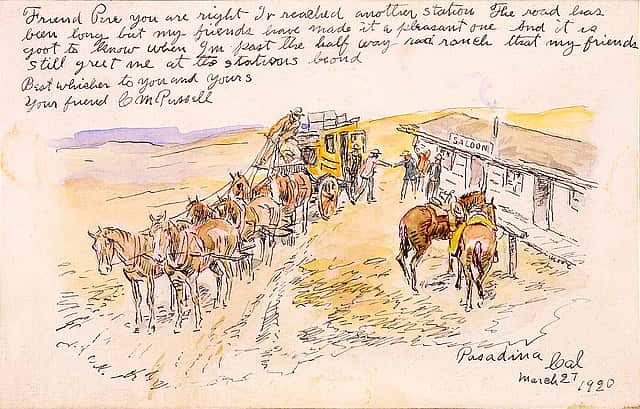 Friend Pere you are right I'v reached another station The road has
been long but my friends have made it a plesant one And it is
goot to know when I'm past the half way ranch that my friends
still greet me at the stations beond
Best whisher to you and yours
Your friend C M Russell
SALOON
Pasadina Cal
March 27 1920